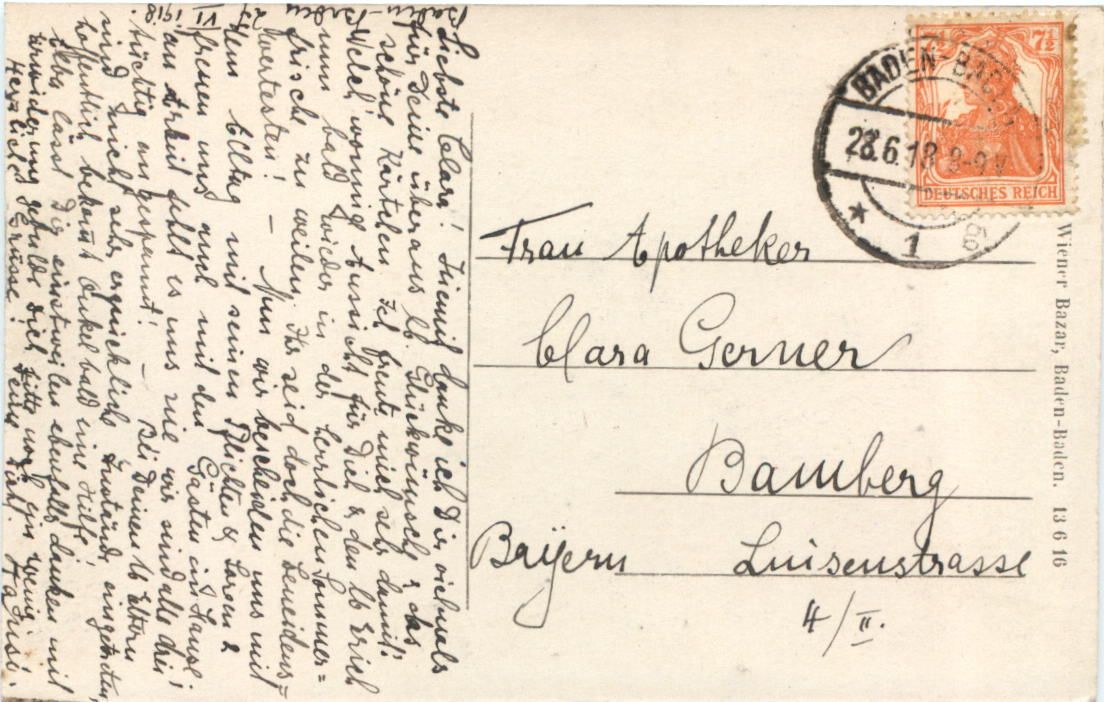 Baden-Baden
27. VI. 1918.
Liebste Clara! Hiemit danke ich Dir vielmals
für Deine überaus lb. Glückwünsche & das
schöne Kärtchen. Ich freute mich sehr damit!
Welch' wonnige Aussicht für Dich & den lb Erich
nun bald wieder in der herrlichen Sommer=
frische zu weilen. Ihr seid doch die Beneidens=
wertesten! – Nun wir bescheiden uns mit
dem Alltag mit seinen Pflichten & Sorgen &
freuen uns auch mit den Gästen im Haus!
an Arbeit fehlt es uns nie wir sind alle drei
tüchtig angespannt! – Bei Deinen lb Eltern
sind nicht sehr erquickliche Zustände eingetreten,
hoffentlich bekommt Onkel bald eine Hilfe!
lässt Dir einstweilen ebenfalls danken mit
Erwiderung geduldet Euch bitte noch ein wenig!
Herzlichste Grüsse!
Frau Apotheker
Clara Gerner
Bamberg
Bayern Luisenstrasse
4/II.
7½ 7½
DEUTSCHES REICH
BADEN-BADEN
28.6.18 8-9V
* 1
Wiener Bazar, Baden-Baden. 13 6 16